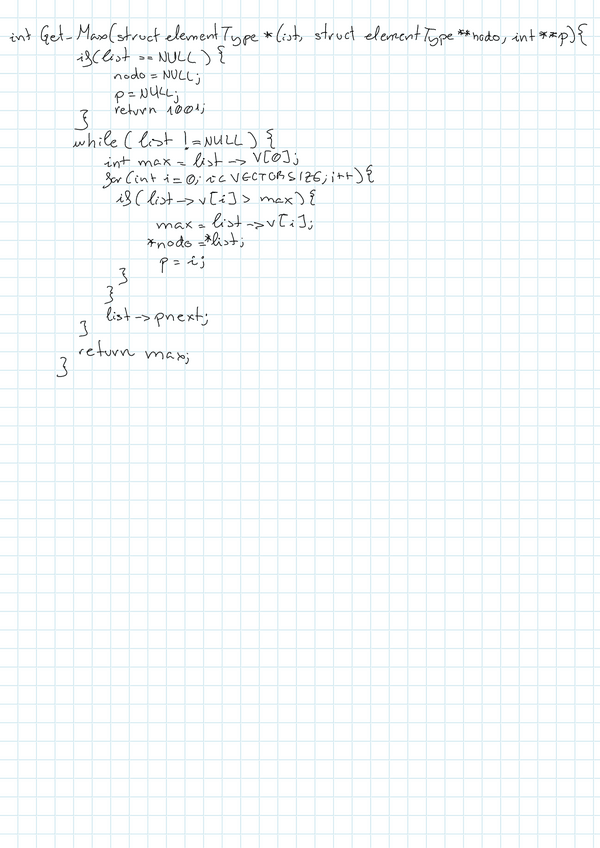 int Get_Max(struct elementType *list, struct elementType **nodo, int **p){
if(list == NULL) {
nodo = NULL;
p = NULL;
return 1001;
}
while ( list != NULL ) {
int max = list -> V[0];
for (int i = 0; i < VECTORSIZE; i++) {
if( list -> v[i] > max ) {
max = list -> v[i];
*nodo = *list;
p = i;
}
}
list -> pnext;
}
return max;
}